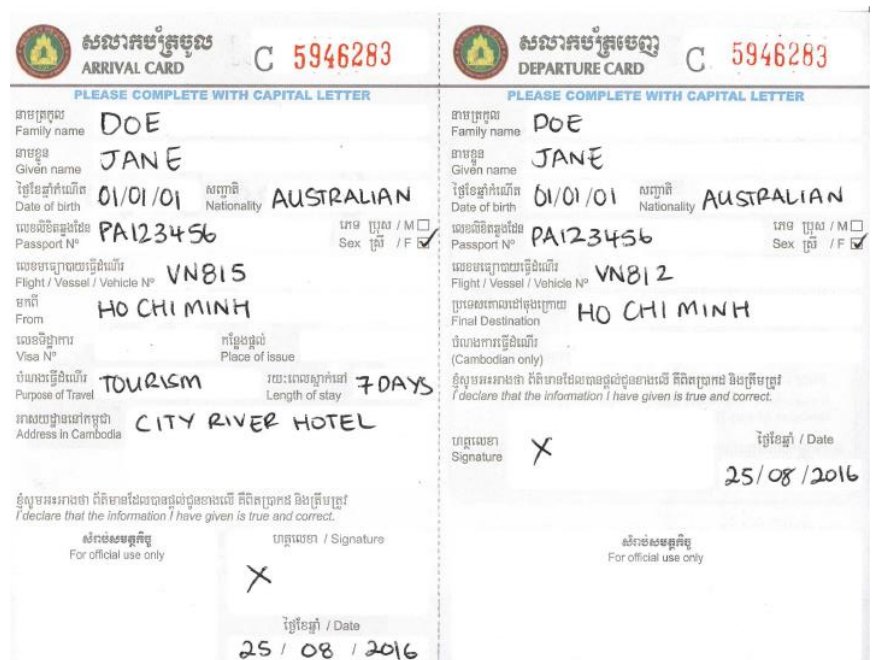 សលាកបត្រចូល
ARRIVAL CARD
C 5946283
PLEASE COMPLETE WITH CAPITAL LETTER
នាមត្រកូល
Family name DOE
នាមខ្លួន
Given name JANE
ថ្ងៃខែឆ្នាំកំណើត សញ្ជាតិ
Date of birth 01/01/01 Nationality AUSTRALIAN
លេខលិខិតឆ្លងដែន ភេទ ប្រុស / M
Passport Nº PA123456 Sex ស្រី / F ✓
លេខមធ្យោបាយធ្វើដំណើរ
Flight / Vessel / Vehicle Nº VN815
មកពី
From HO CHI MINH
លេខទិដ្ឋាការ កន្លែងផ្តល់
Visa Nº Place of issue
បំណងធ្វើដំណើរ រយៈពេលស្នាក់នៅ
Purpose of Travel TOURISM Length of stay 7 DAYS
អាសយដ្ឋាននៅកម្ពុជា
Address in Cambodia CITY RIVER HOTEL
ខ្ញុំសូមអះអាងថា ព័ត៌មានដែលបានផ្តល់ជូនខាងលើ គឺពិតប្រាកដ និងត្រឹមត្រូវ
I declare that the information I have given is true and correct.
សំរាប់សមត្ថកិច្ច
For official use only
ហត្ថលេខា / Signature
X
ថ្ងៃខែឆ្នាំ / Date
25 / 08 / 2016
សលាកបត្រចេញ
DEPARTURE CARD
C 5946283
PLEASE COMPLETE WITH CAPITAL LETTER
នាមត្រកូល
Family name DOE
នាមខ្លួន
Given name JANE
ថ្ងៃខែឆ្នាំកំណើត សញ្ជាតិ
Date of birth 01/01/01 Nationality AUSTRALIAN
លេខលិខិតឆ្លងដែន ភេទ ប្រុស / M
Passport Nº PA123456 Sex ស្រី / F ✓
លេខមធ្យោបាយធ្វើដំណើរ
Flight / Vessel / Vehicle Nº VN812
ប្រទេសគោលដៅចុងក្រោយ
Final Destination HO CHI MINH
បំណងការធ្វើដំណើរ
(Cambodian only)
ខ្ញុំសូមអះអាងថា ព័ត៌មានដែលបានផ្តល់ជូនខាងលើ គឺពិតប្រាកដ និងត្រឹមត្រូវ
I declare that the information I have given is true and correct.
ហត្ថលេខា ថ្ងៃខែឆ្នាំ / Date
Signature X
25/08/2016
សំរាប់សមត្ថកិច្ច
For official use only